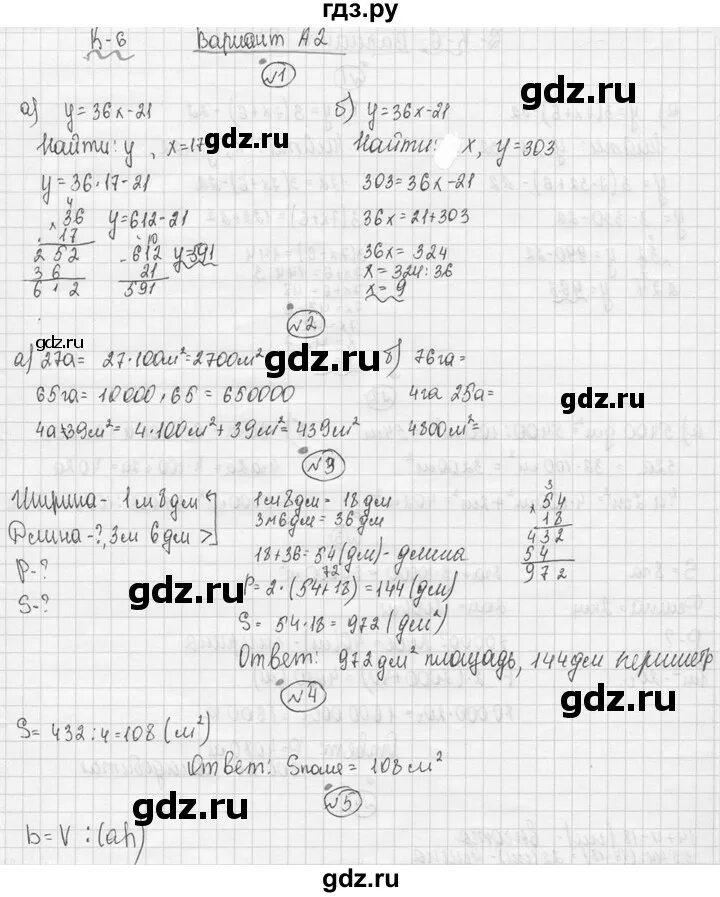 гдз.ру
К-6 Вариант А2
№1
а) y = 36x-21 б) y = 36x-21
Найти: y, x=17 Найти: x, y=303
y = 36·17-21 303 = 36x-21
y=612-21 36x = 21+303
y=591 36x = 324
x = 324:36
x = 9
4
×36
17
252
36
612
10
-612
21
591
№2
а) 27а = 27·100м²=2700м² б) 76га=
65га= 10000·65 = 650000 4га 25а=
4а+39м²= 4·100м²+39м²=439м² 4800м²=
№3
Ширина - 1м 8дм 1м8дм = 18дм
Длина-?, 3м 6дм > 3м6дм = 36 дм
P-? 18+36=54(дм)-длина
S-? P = 2·(54+18)=144(дм)
72
S = 54·18=972(дм²)
3
×54
18
432
54
972
Ответ: 972дм² площадь, 144дм периметр
№4
S= 432:4=108(м²)
Ответ: Sполе= 108м²
№5
b=V:(ah)
gdz.ru
gdz.ru
gdz.ru
gdz.ru
gdz.ru
gdz.ru
gdz.ru
gdz.ru
gdz.ru
gdz.ru
gdz.ru
gdz.ru
gdz.ru